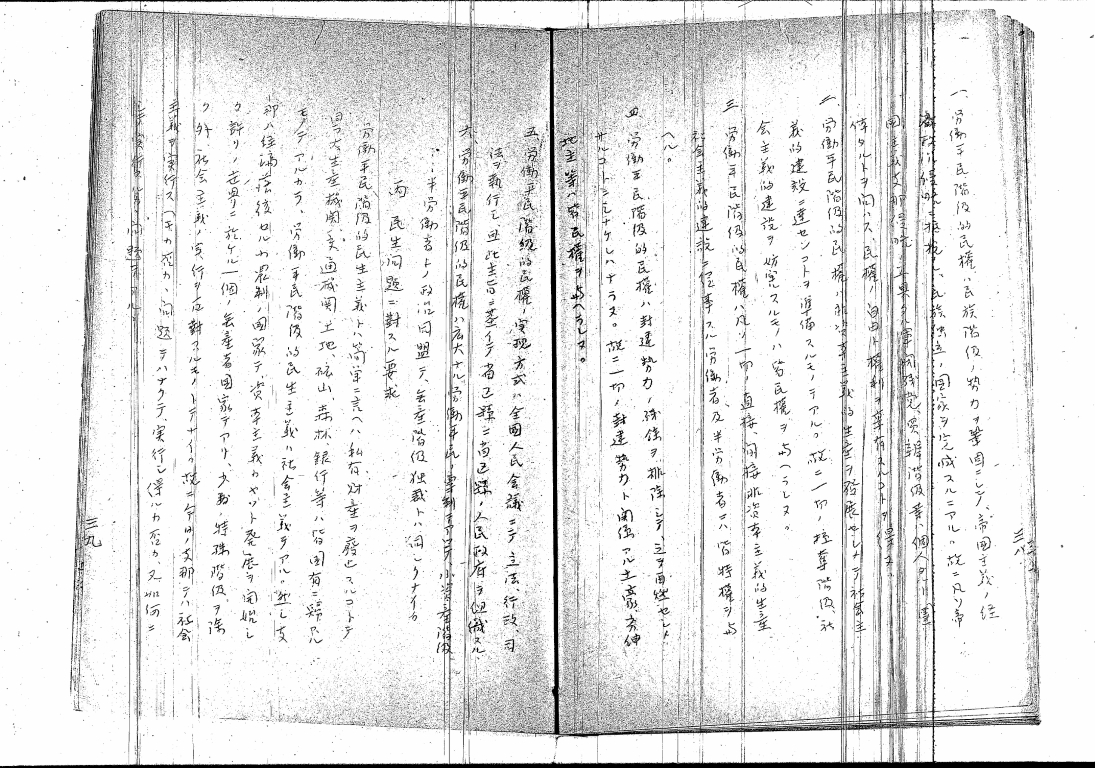 一、労働平民階級的民権ハ民族階級ノ勢力ヲ鞏固ニシテ、帝国主義ノ経
済政治侵略ニ抵抗シ、民族独立ノ国家ヲ完成スルニアル。故ニ凡ソ帝
国主義支那侵略ノ工具タル軍閥残党、買辦階級等ハ個人タリ団
体タルトヲ問ハス、民権ノ自由ト権利ヲ享有スルコトヲ得ス。
二、労働平民階級的民権ハ非資本主義的生産ヲ発展セシメテ社会主
義的建設ニ達セシコトヲ準備スルモノテアル。故ニ一切ノ搾奪階級、社
会主義的建設ヲ妨害スルモノハ皆民権ヲ与ヘラレヌ。
三、労働平民階級的民権ハ凡ソ一切ノ直接、間接非資本主義的生産
社会主義的建設ニ従事スル労働者及半労働者ニハ皆特権ヲ与
ヘル。
四、労働平民階級的民権ハ封建勢力ノ残余ヲ排除シテ、之ヲ 絶セシメ
サルコトニシナケレハナラヌ。故ニ一切ノ封建勢力ト関係アル土豪、劣紳
地主等ハ皆民権ヲ与ヘラレヌ。
三八
五、労働平民階級的民権ノ実現方式ハ全国人民会議ニテ立法、行政、司
法ヲ執行シ且此主旨ニ基イテ省已縣ニ省已縣ノ人民政府ヲ組織スル
六、労働平民階級的民権ハ広大ナル労働平民ノ 小資産階級
半労働者トノ政治同盟テ、無産階級独裁トハ同シクナイ。
丙 民生問題ニ対スル要求
労働平民階級的民生主義トハ簡単ニ言ヘハ私有財産ヲ廃止スルコトテ
且ツ大生産機関、交通機関、土地、砿山、森林、銀行等ハ皆国有ニ歸スル
モノテアルカラ、労働平民階級的民生主義ハ社会主義テアル。然シ支
那ハ経済落後セル 国家テ、資本主義カヤット発展ヲ開始シ
タ許リノ世界ニ於ケル一個ノ無産者国家テアリ、少数ノ特殊階級ヲ除
ク外社会主義ノ実行ヲ反対スルモノトテナイ。故ニ今日ノ支那テハ社会
主義ヲ実行ス ヘキカ否カノ問題テハナクテ実行シ得ルカ否カ、又如何ニ
シテ実行スルカノ問題テアル。
三九